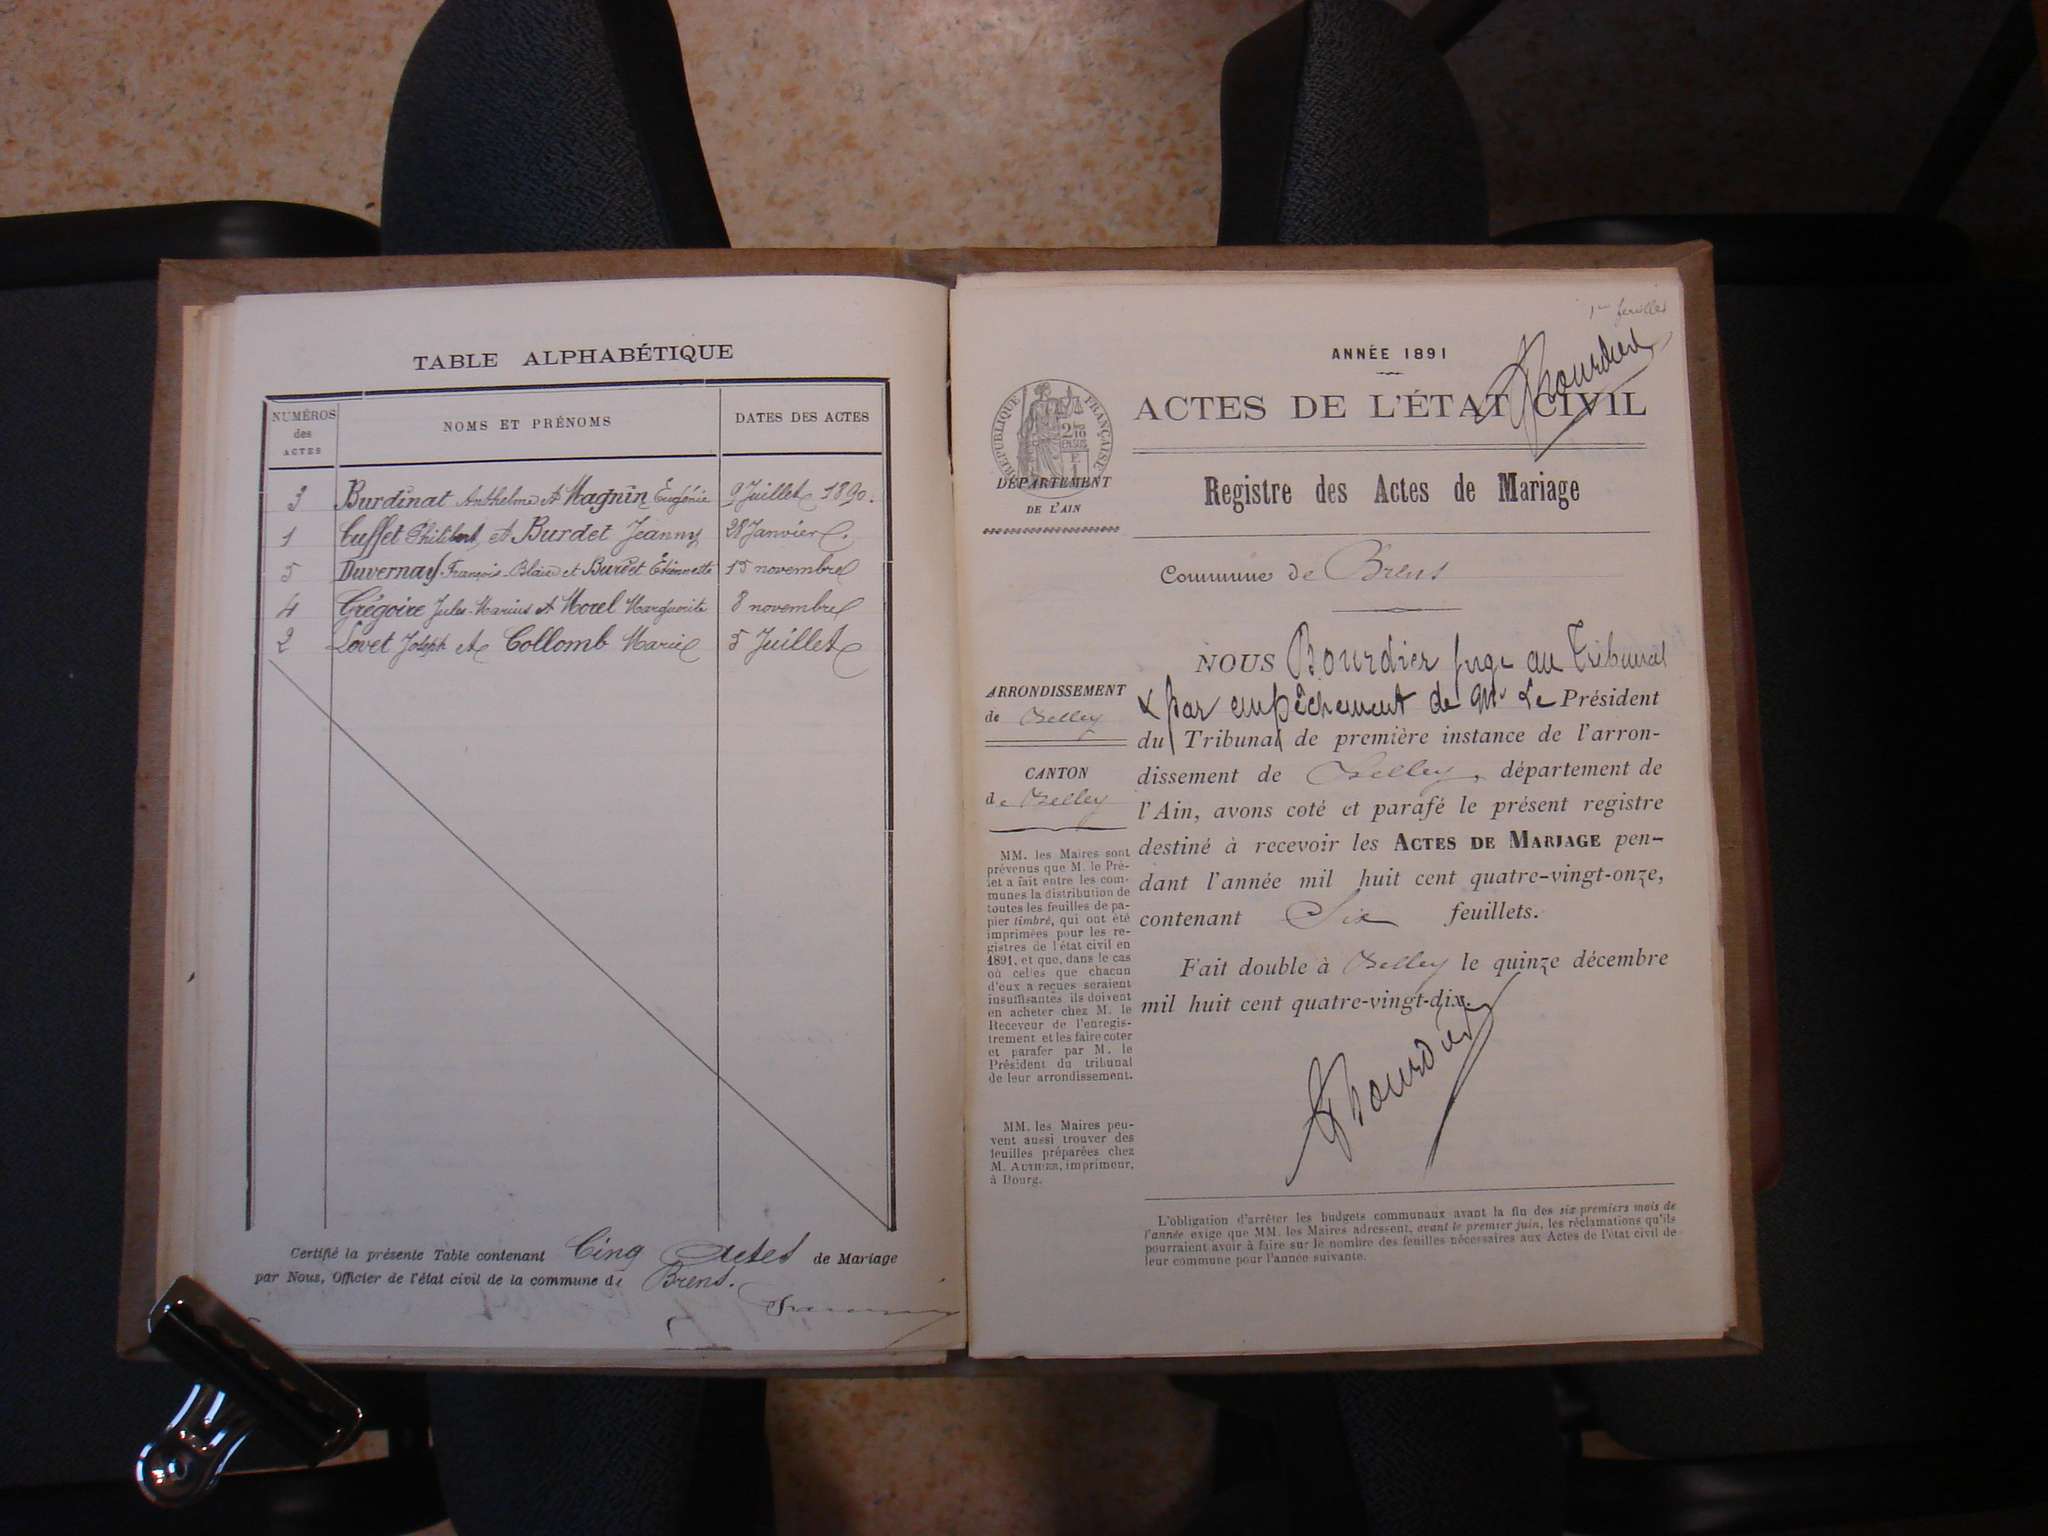 TABLE ALPHABÉTIQUE
NUMÉROS
des
ACTES
NOMS ET PRÉNOMS
DATES DES ACTES
3 Burdinat Anthelme et Magnin Eugénie 9 Juillet 1890.
1 Cuffet Philibert et Burdet Jeanny 28 Janvier
5 Duvernay François-Blaise et Burdet Etiennette 15 novembre
4 Grégoire Jules-Marius et Morel Marguerite 8 novembre
2 Lovet Joseph et Collomb Marie 5 Juillet
Certifié la présente Table contenant Cinq Actes de Mariage
par Nous, Officier de l'état civil de la commune de Brens.
1er feuillet
Bourdier
ANNÉE 1891
ACTES DE L'ÉTAT CIVIL
RÉPUBLIQUE FRANÇAISE
DÉPARTEMENT
DE L'AIN
Registre des Actes de Mariage
Commune de Brens
ARRONDISSEMENT
de Belley
CANTON
de Belley
MM. les Maires sont
prévenus que M. le Pré-
fet a fait entre les com-
munes la distribution de
toutes les feuilles de pa-
pier timbré, qui ont été
imprimées pour les re-
gistres de l'état civil en
1891, et que, dans le cas
où celles que chacun
d'eux a reçues seraient
insuffisantes ils doivent
en acheter chez M. le
Receveur de l'enregis-
trement et les faire coter
et parafer par M. le
Président du tribunal
de leur arrondissement.
MM. les Maires peu-
vent aussi trouver des
feuilles préparées chez
M. AUTHIER, imprimeur,
à Bourg.
NOUS Bourdier juge au Tribunal
par empêchement de Mr Le Président
du Tribunal de première instance de l'arron-
dissement de Belley, département de
l'Ain, avons coté et parafé le présent registre
destiné à recevoir les ACTES DE MARIAGE pen-
dant l'année mil huit cent quatre-vingt-onze,
contenant Six feuillets.
Fait double à Belley le quinze décembre
mil huit cent quatre-vingt-dix.
Bourdier
L'obligation d'arrêter les budgets communaux avant la fin des six premiers mois de
l'année exige que MM. les Maires adressent, avant le premier juin, les réclamations qu'ils
pourraient avoir à faire sur le nombre des feuilles nécessaires aux Actes de l'état civil de
leur commune pour l'année suivante.